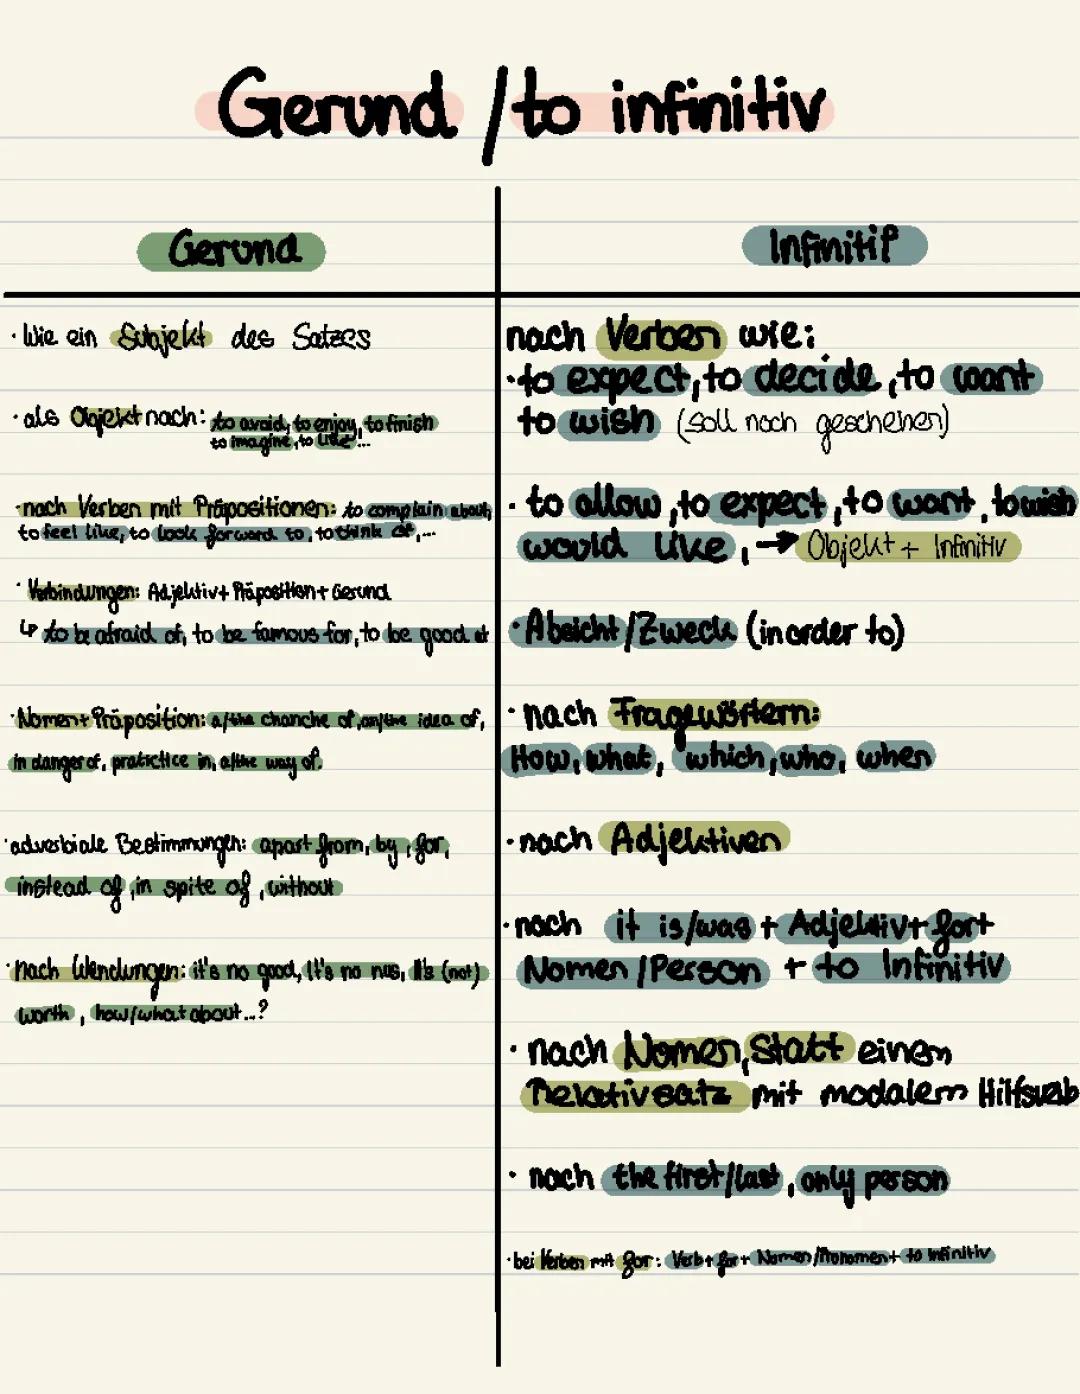 Gerund / to infinitiv
Gerund
· Wie ein Subjekt des Satzes
· als Objekt nach: to avoid, to enjoy, to finish
to imagine, to like...
· nach Verben mit Präpositionen: to complain about,
to feel like, to look forward to, to think of,...
· Verbindungen: Adjektiv + Präposition + Gerund
↳ to be afraid of, to be famous for, to be good at
· Nomen + Präposition: a/the chanche of, an/the idea of,
in danger of, pratictice in, a/the way of.
· adverbiale Bestimmungen: apart from, by, for,
instead of, in spite of, without
· nach Wendungen: it's no good, It's no nus, It's (not)
worth, how/what about...?
Infinitif
nach Verben wie:
· to expect, to decide, to want
to wish (soll noch geschehen)
· to allow, to expect, to want, to wish
would like, → Objekt + Infinitiv
· Absicht/Zweck (in order to)
· nach Fragewörtern:
How, what, which, who, when
· nach Adjektiven
· nach it is/was + Adjektiv + for +
Nomen/Person + to Infinitiv
· nach Nomen, statt einem
Relativsatz mit modalem Hilfsverb
· nach the first/last, only person
· bei Verben mit for: Verb + for + Nomen/Pronomen + to infinitiv